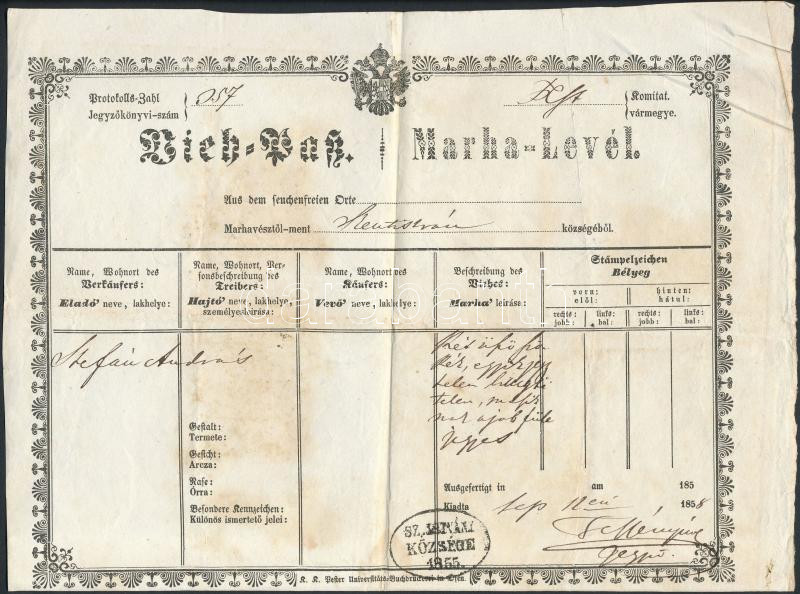 Protokolls-Zahl
Jegyzőkönyvi-szám
257
Pest
Komitat.
vármegye.
Vieh-Paß. Marha-Levél.
Aus dem seuchenfreien Orte
Marhavésztől-ment Szentistván községéből.
Name, Wohnort des
Verkäufers:
Eladó' neve, lakhelye:
Name, Wohnort, Per-
sonsbeschreibung des
Treibers:
Hajtó' neve, lakhelye,
személyesleirása:
Name, Wohnort des
Käufers:
Vevő' neve, lakhelye:
Beschreibung des
Viehes:
Marha' leirása:
Stämpelzeichen
Bélyeg
vorn:
elöl:
hinten:
hátul:
rechts:
jobb:
links:
bal:
rechts:
jobb:
links:
bal:
Stefán András
Gestalt:
Termete:
Gesicht:
Arcza:
Nase:
Orra:
Besondere Kennzeichen:
Különös ismertető jelei:
Ausgefertigt in am 185
Kiadta Sep 1858
KÖZSÉGE
1855.
K. K. Pester Universitäts-Buchdruckerei in Ofen.